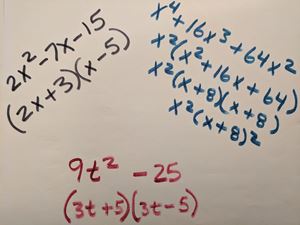 2x² - 7x - 15
(2x + 3)(x - 5)
x⁴ + 16x³ + 64x²
x²(x² + 16x + 64)
x²(x + 8)(x + 8)
x²(x + 8)²
9t² - 25
(3t + 5)(3t - 5)